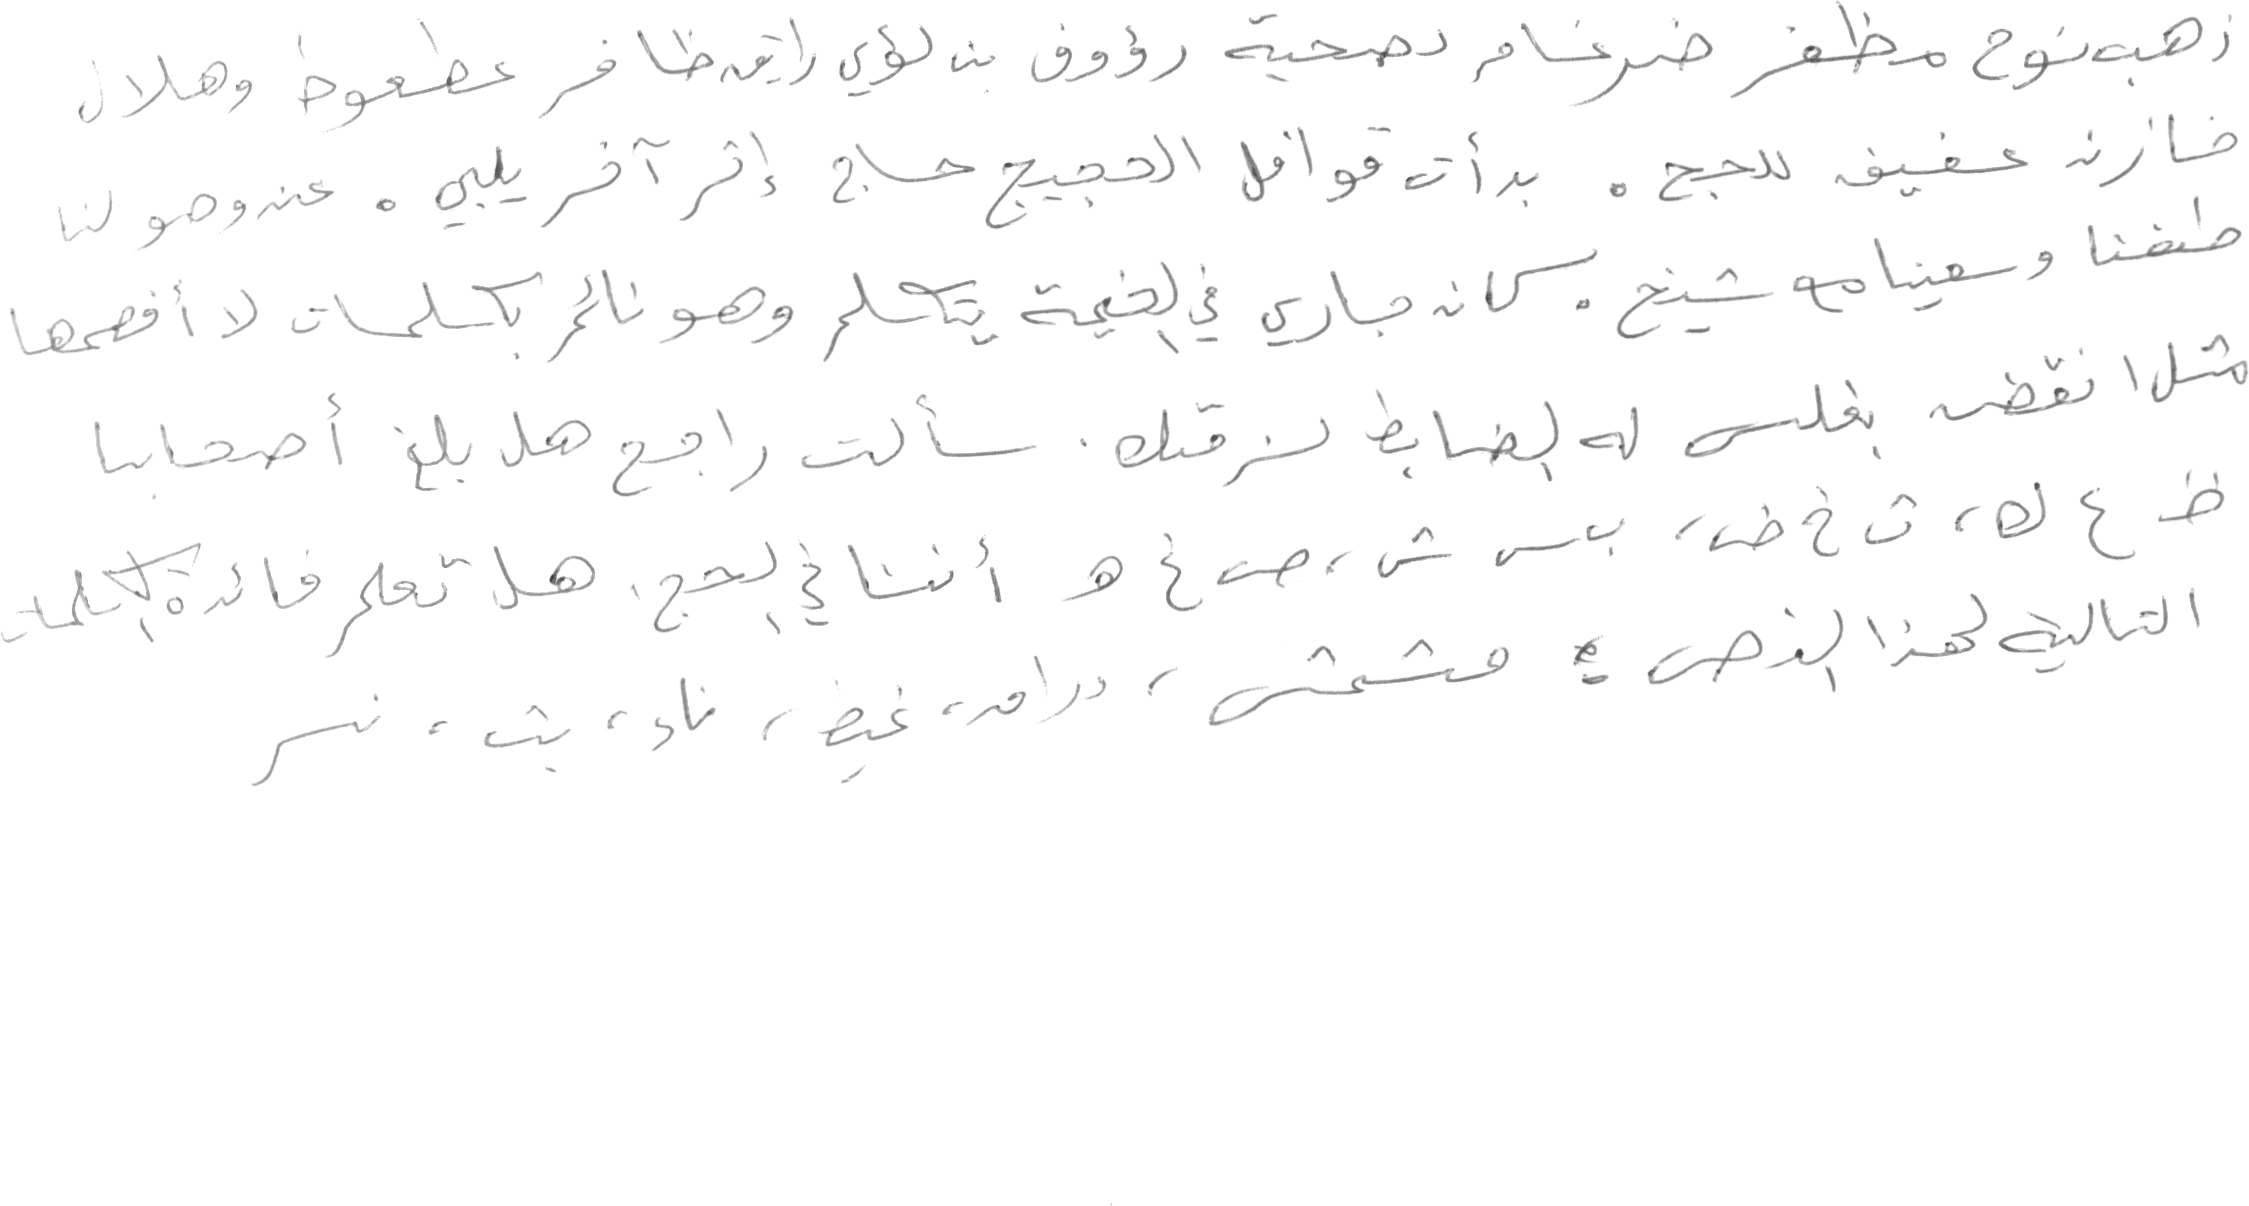 ذهب نوح مظفر ضرغام بصحبة رؤوف بن لؤي رايق ظافر عطعوط وهلال
خازن عفيف للحج . بدأت قوافل الحجيج حاج إثر آخر يلبي . عند وصولنا
طفنا وسعينا مع شيخ . كان جاري في الخيمة يتكلم وهو نائم بكلمات لا أفهمها
مثل انقض بغلس له الضابط لزقك . سألت راجح هل بلغ أصحابنا
ظ ع ك ، ث خ ض ، ب س ش ، ص غ ه أننا في الحج . هل تعلم فائدة الكلمات
التالية لهذا النص ؟ مشمش ، دراق ، غيظ ، ناء ، بث ، نسر